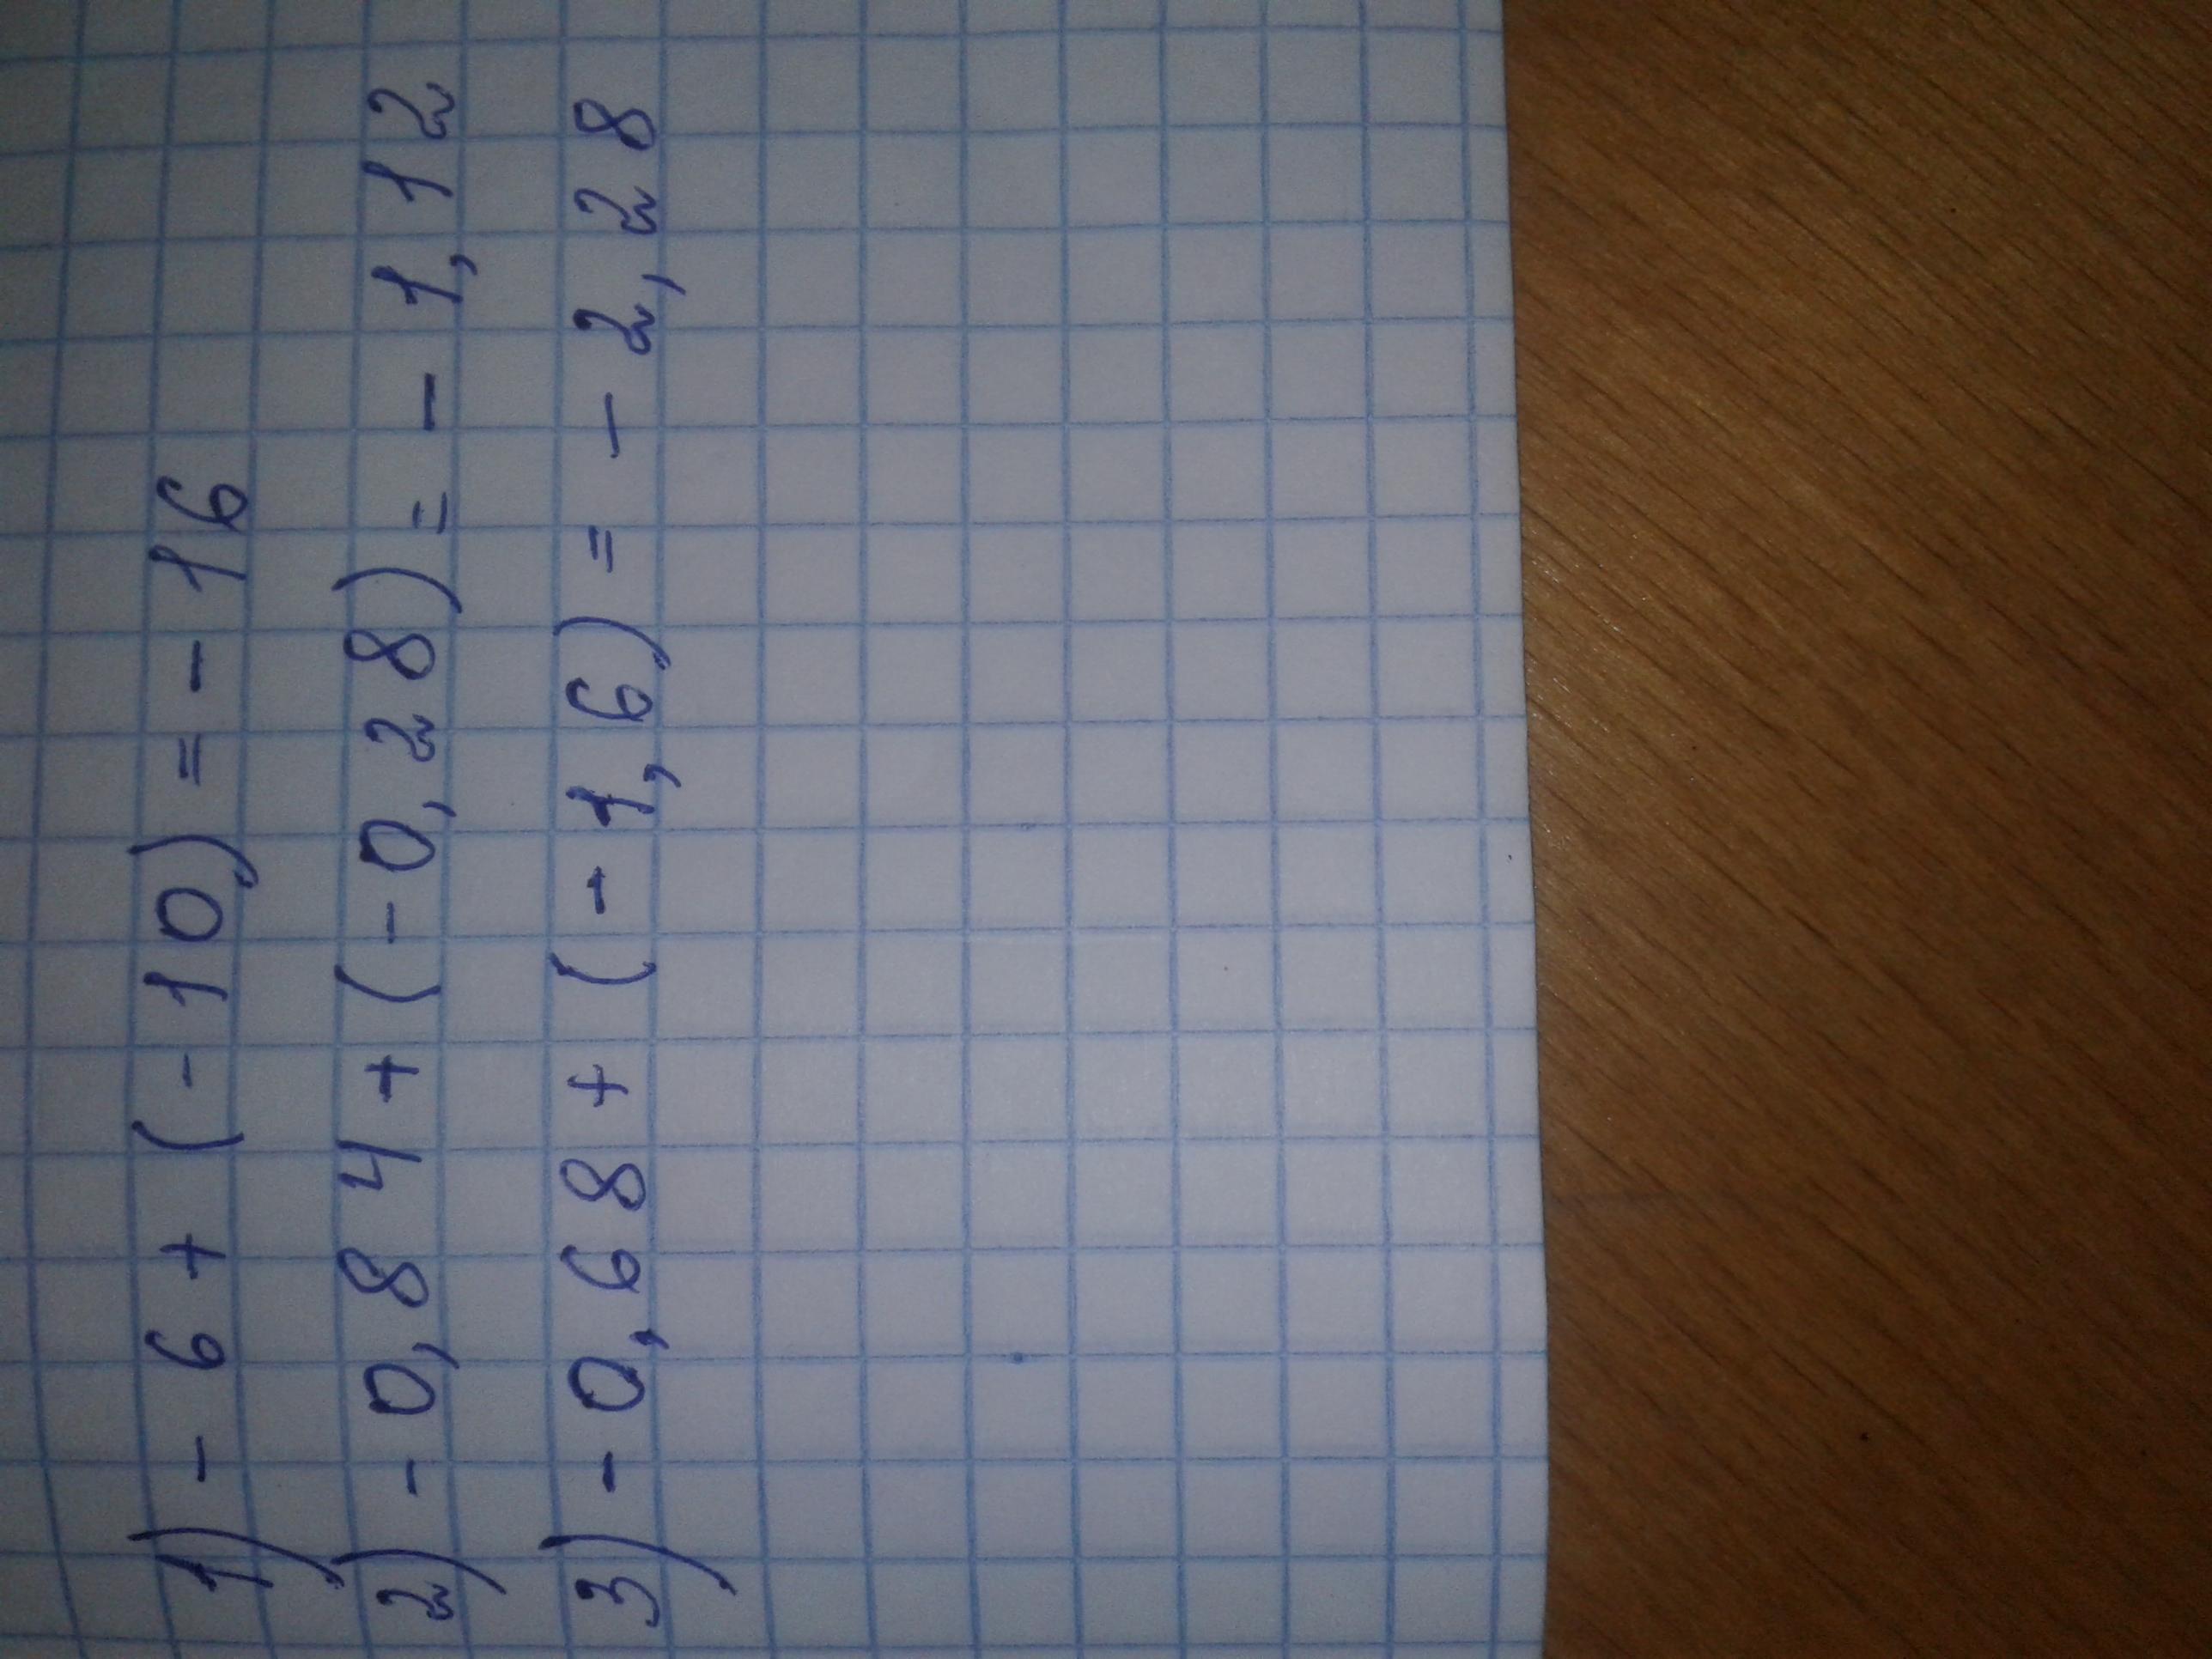 1) - 6 + (- 10) = - 16
2) - 0,84 + (- 0,28) = - 1,12
3) - 0,68 + (- 1,6) = - 2,28